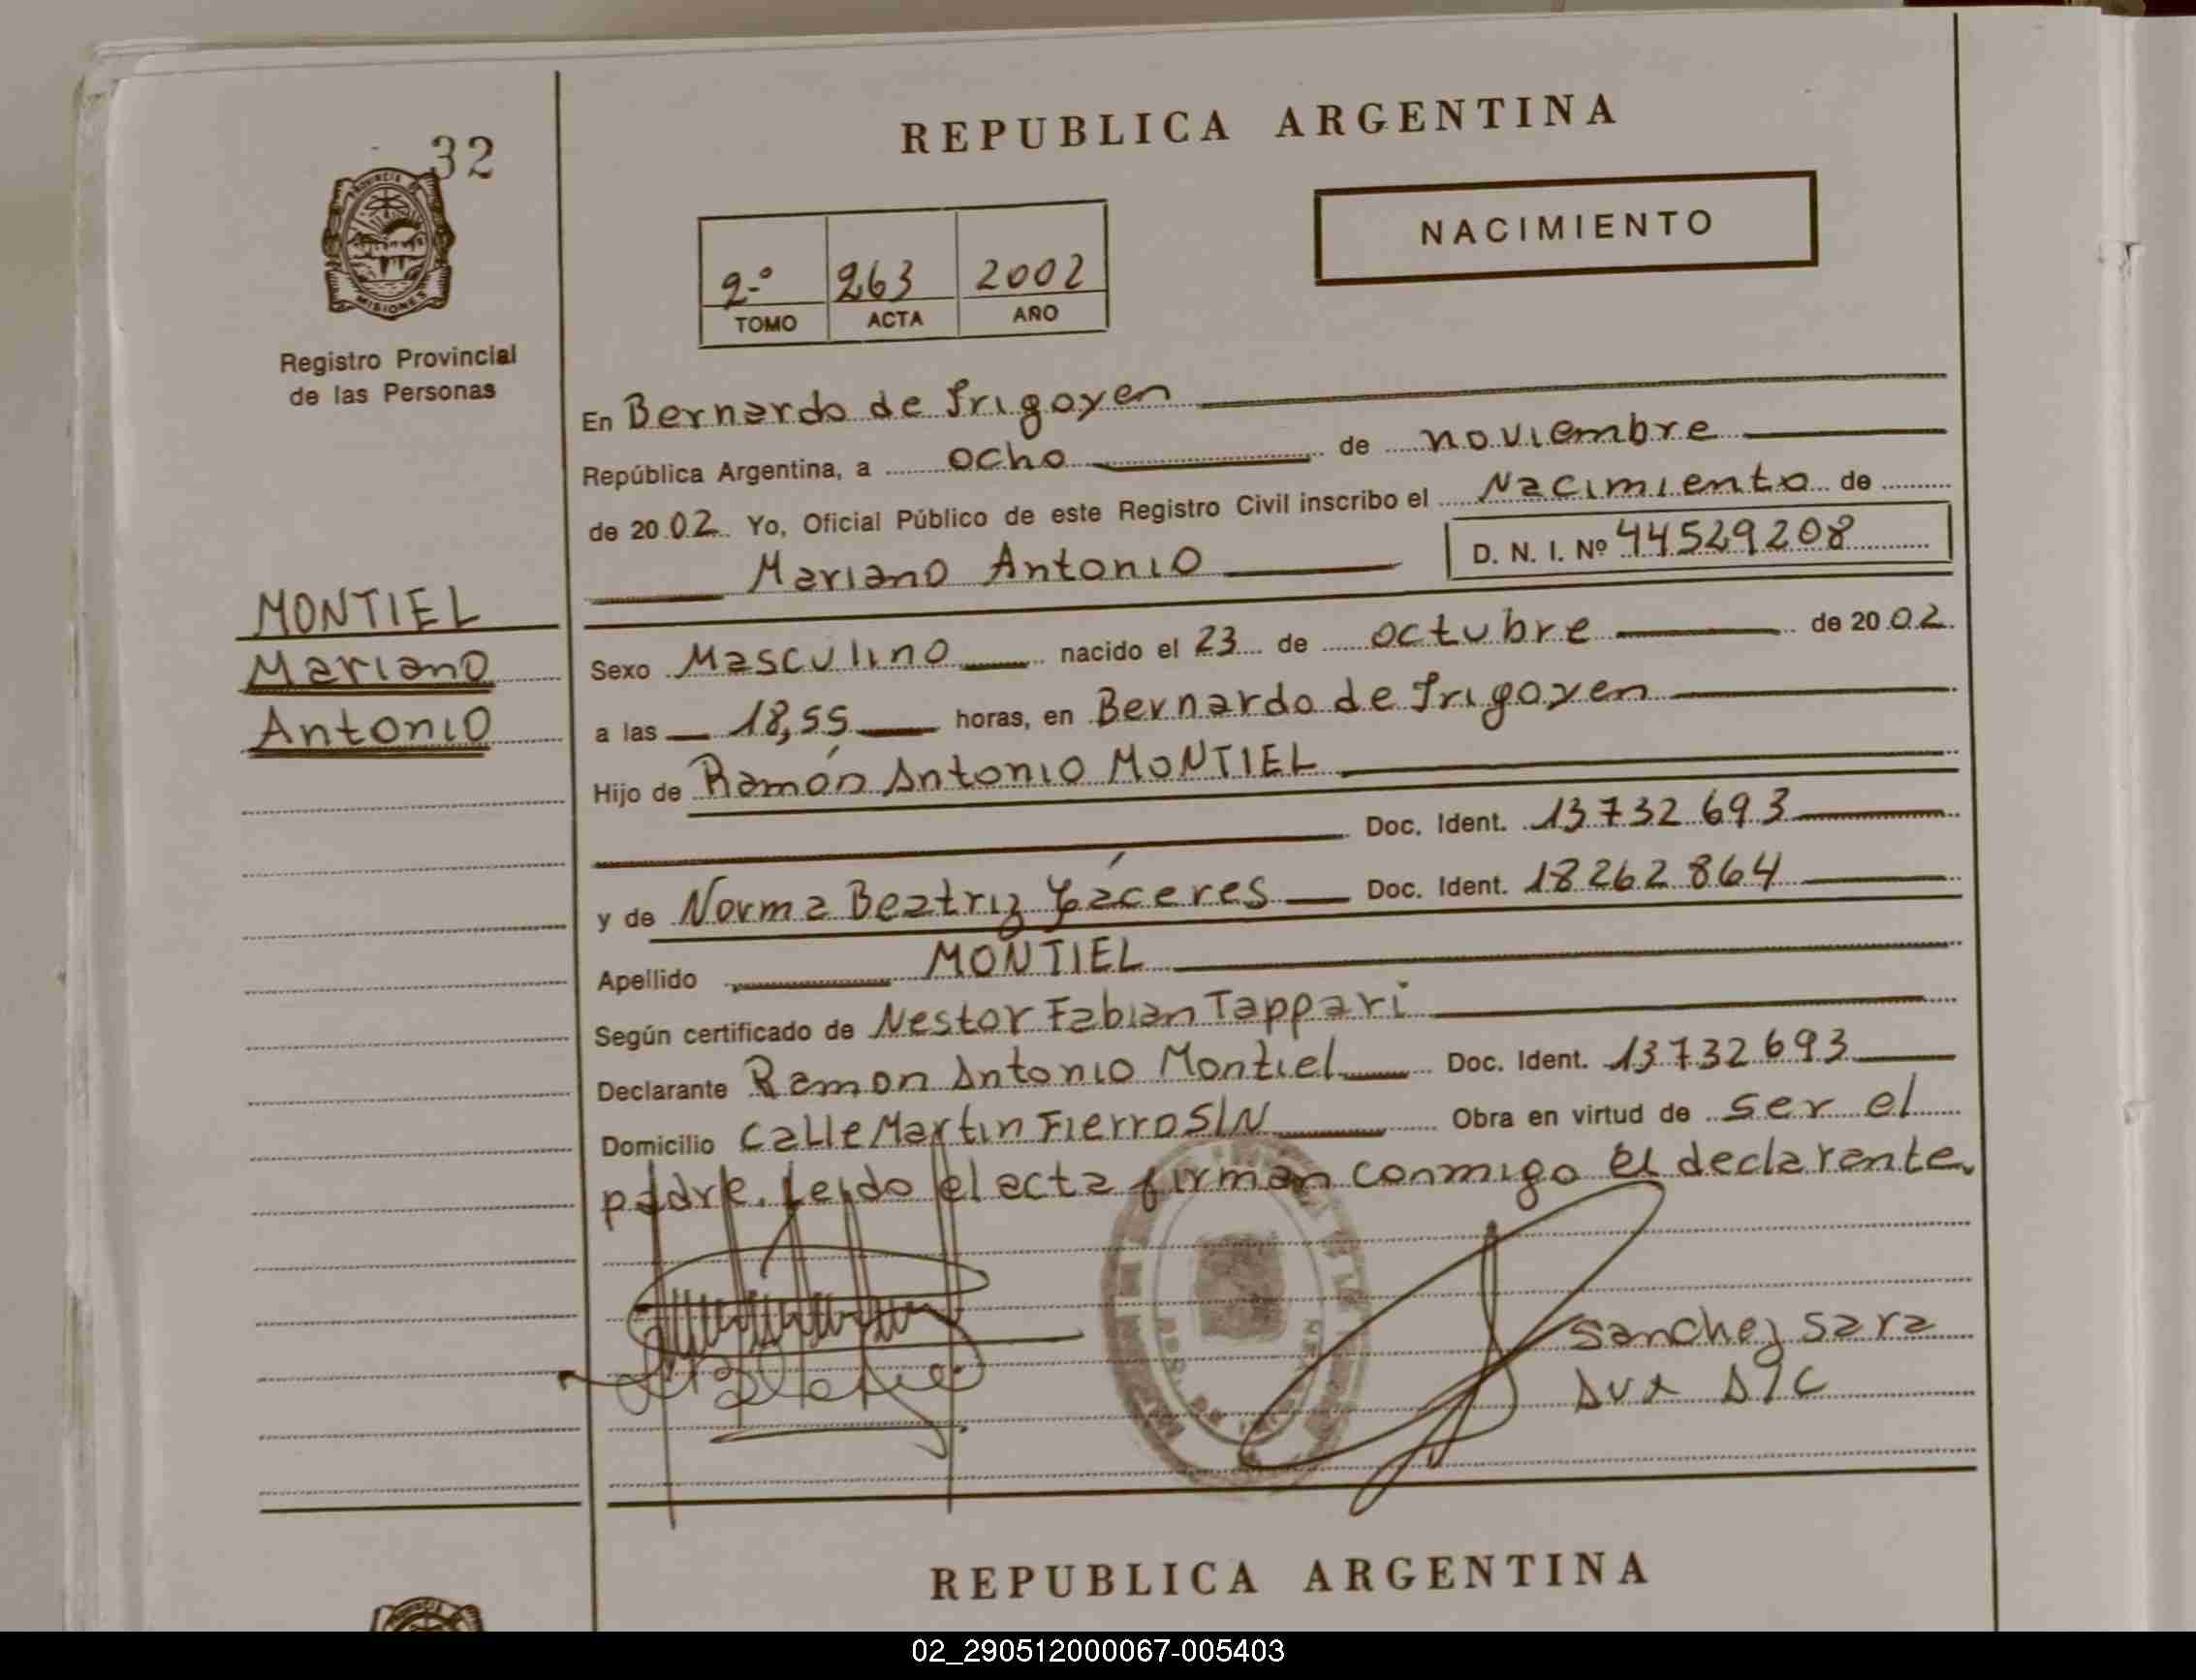 32
PROVINCIA
MISIONES
Registro Provincial
de las Personas
MONTIEL
Mariano
Antonio
REPUBLICA ARGENTINA
NACIMIENTO
2º 263 2002
TOMO ACTA AÑO
En Bernardo de Irigoyen
República Argentina, a ocho de noviembre
de 2002 Yo, Oficial Público de este Registro Civil inscribo el Nacimiento de
Mariano Antonio D. N. I. Nº 44529208
Sexo Masculino nacido el 23 de octubre de 2002.
a las 18,55 horas, en Bernardo de Irigoyen
Hijo de Ramón Antonio MONTIEL
Doc. Ident. 13732693
y de Norma Beatriz Cáceres Doc. Ident. 18262864
Apellido MONTIEL
Según certificado de Nestor Fabian Tappari
Declarante Ramon Antonio Montiel Doc. Ident. 13732693
Domicilio Calle Martin Fierro S/N Obra en virtud de ser el
padre. Leido el acta firman conmigo el declarante.
Sanchez Sara
REPUBLICA ARGENTINA
PROVINCIA
02_290512000067-005403